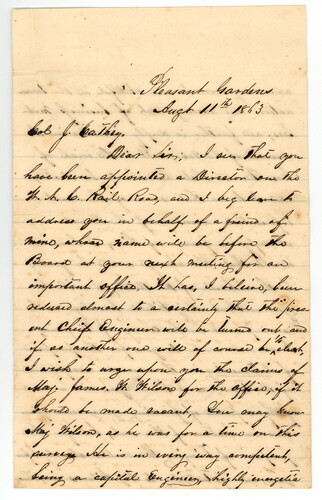 Pleasant Gardens
Augt 11th 1863
Col J. Cathey.
Dear Sir; I see that you
have been appointed a Director on the
W. N. C. Rail Road, and I beg leave to
address you in behalf of a friend of
mine, whose name will be before the
Board at your next meeting for an
important office. It has, I believe, been
reduced almost to a certainty that the pres-
ent Chief Engineer will be turned out and
if so another one will of course be to elect,
I wish to urge upon you the claims of
Maj. James. W. Wilson for the office, if it
should be made vacant, You may know
Maj Wilson, as he was for a time on this
survey. He is in every way competent,
being a capital Engineer, highly energetic